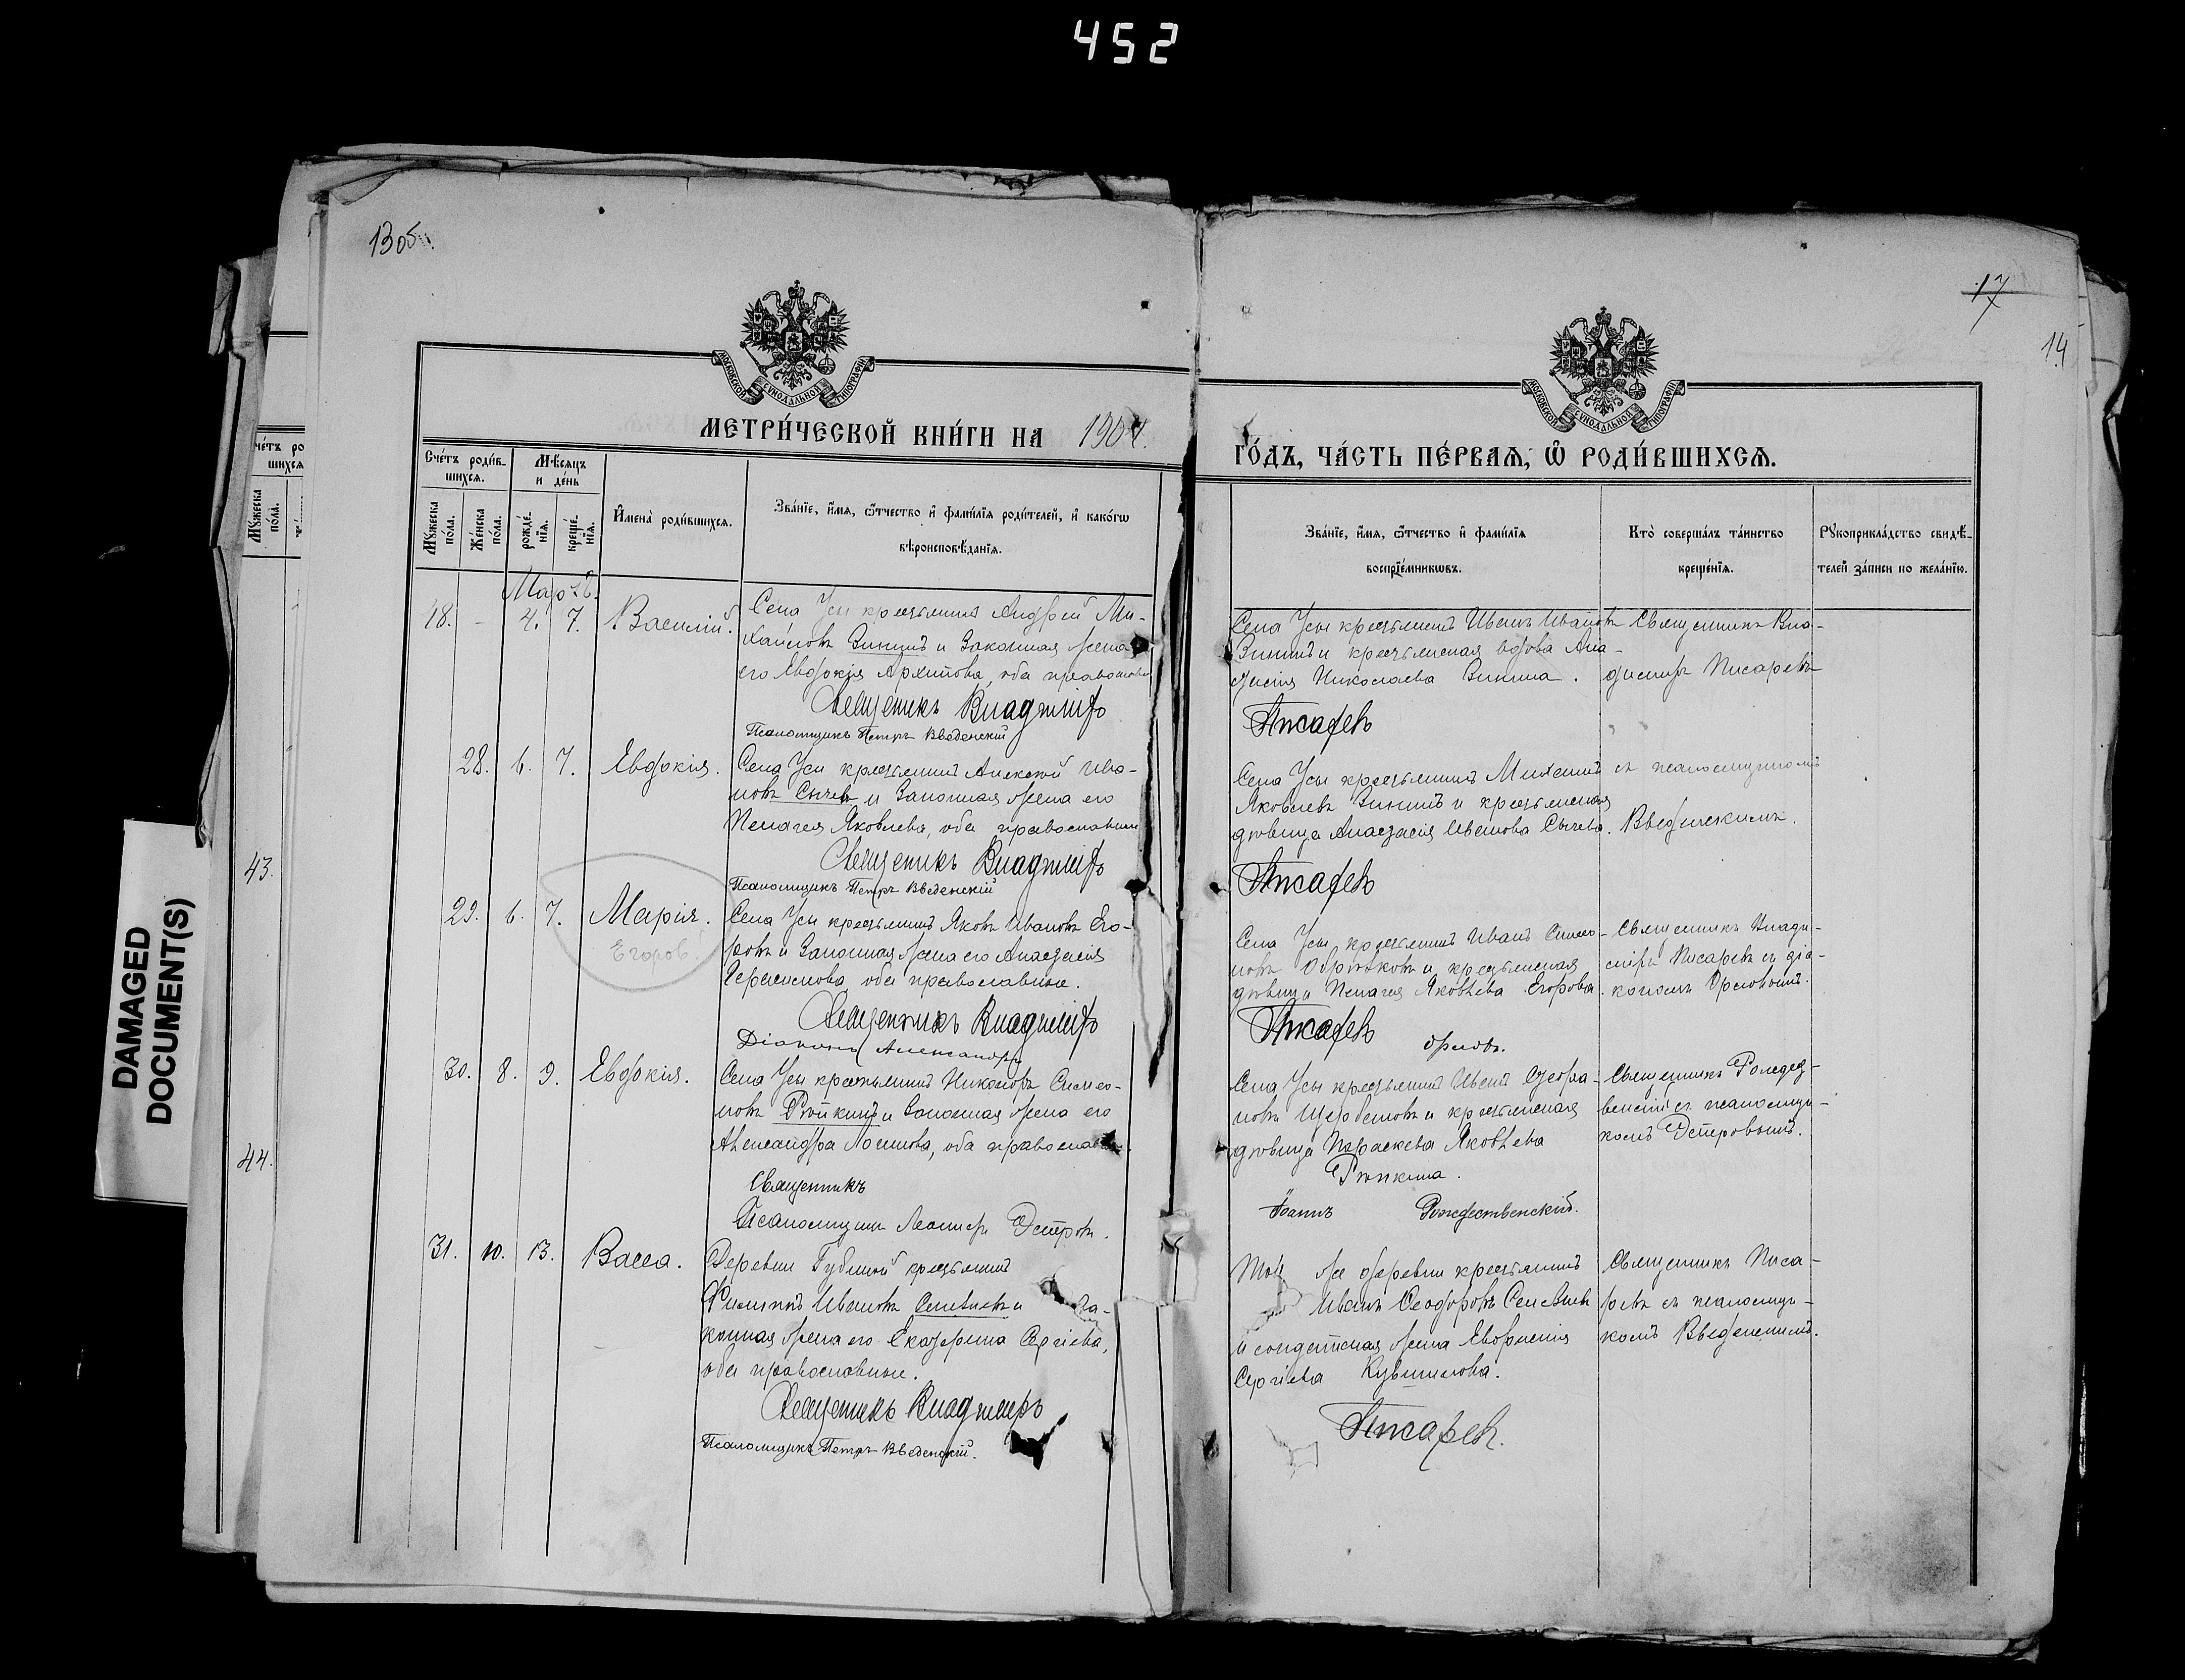 452
130б.
17
14
МОСКОВСКОЙ СѴНОДАЛЬНОЙ ТИПОГРАФІИ
МОСКОВСКОЙ СѴНОДАЛЬНОЙ ТИПОГРАФІИ
МЕТРИ́ЧЕСКОЙ КНИ́ГИ НА 1904.
ГО́ДЪ, ЧА́СТЬ ПЕ́РВАѦ, Ѡ҆ РОДИ́ВШИХСѦ.
Сче́тъ роди́в-
шихсѧ.
Мѣ́сѧцъ
и де́нь
Мꙋ́жеска
по́ла.
Же́нска
по́ла.
рожде́-
нїѧ.
креще́-
нїѧ.
И҆мена̀ роди́вшихсѧ.
Зва́нїе, и҆́мѧ, ѻ҆́тчество и҆ фами́лїѧ роди́телей, и҆ како́гѡ
вѣроисповѣ́данїѧ.
Зва́нїе, и҆́мѧ, ѻ҆́тчество и҆ фами́лїѧ
воспрїе́мникѡвъ.
Кто̀ соверша́лъ та́инство
креще́нїѧ.
Рꙋкоприкла́дство свидѣ́-
телей за́писи по жела́нїю.
Мартъ.
18. - 4. 7. Василій.
Села Усы крестьянинъ Андрей Ми-
хайловъ Зининъ и законная жена
его Евдокія Архипова, оба православн
Священникъ Владиміръ
Псаломщикъ Петръ Введенскій
Села Усы крестьянинъ Иванъ Ивановъ
Зининъ и крестьянская вдова Ана-
стасія Николаева Зинина.
Писаревъ
Священникъ Вла-
димиръ Писаревъ
28. 6. 7. Евдокія.
Села Усы крестьянинъ Алексѣй Ива-
новъ Сычевъ и законная жена его
Пелагея Яковлева, оба православные
Священникъ Владиміръ
Псаломщикъ Петръ Введенскій
Села Усы крестьянинъ Михаилъ
Яковлевъ Зининъ и крестьянская
дѣвица Анастасія Иванова Сычева.
Писаревъ
съ псаломщикомъ
Введенскимъ.
29. 6. 7. Марія.
Егоров.
Села Усы крестьянинъ Яковъ Ивановъ Его-
ровъ и законная жена его Анастасія
Герасимова, оба православные.
Священникъ Владиміръ
Діаконъ Александръ
Села Усы крестьянинъ Иванъ Симео-
новъ и крестьянская
дѣвица Пелагея Яковлева Егорова.
Писаревъ
Орловъ.
Священникъ Влади-
міръ Писаревъ съ діа-
кономъ Орловымъ.
30. 8. 9. Евдокія.
Села Усы крестьянинъ Никаноръ Симео-
новъ Рѣпкинъ и законная жена его
Александра Логинова, оба православн.
Священникъ
Псаломщикъ
Села Усы крестьянинъ Иванъ
новъ Щербаковъ и крестьянская
дѣвица Параскева Яковлева
Рѣпкина.
Іоаннъ Рождественскій.
Священникъ Рождест-
венскій съ псаломщи-
комъ
31. 10. 13. Васса.
Деревни Губиной крестьянинъ
Филиппъ Ивановъ и за-
конная жена его Екатерина Сергіева,
оба православные.
Священникъ Владиміръ
Псаломщикъ Петръ Введенскій.
Той же деревни крестьянинъ
Иванъ Ѳеодоровъ
и солдатская жена
Сергіева Кувшинова.
Писаревъ.
Священникъ Писа-
ревъ съ псаломщи-
комъ Введенскимъ.
43.
44.
DAMAGED
DOCUMENT(S)